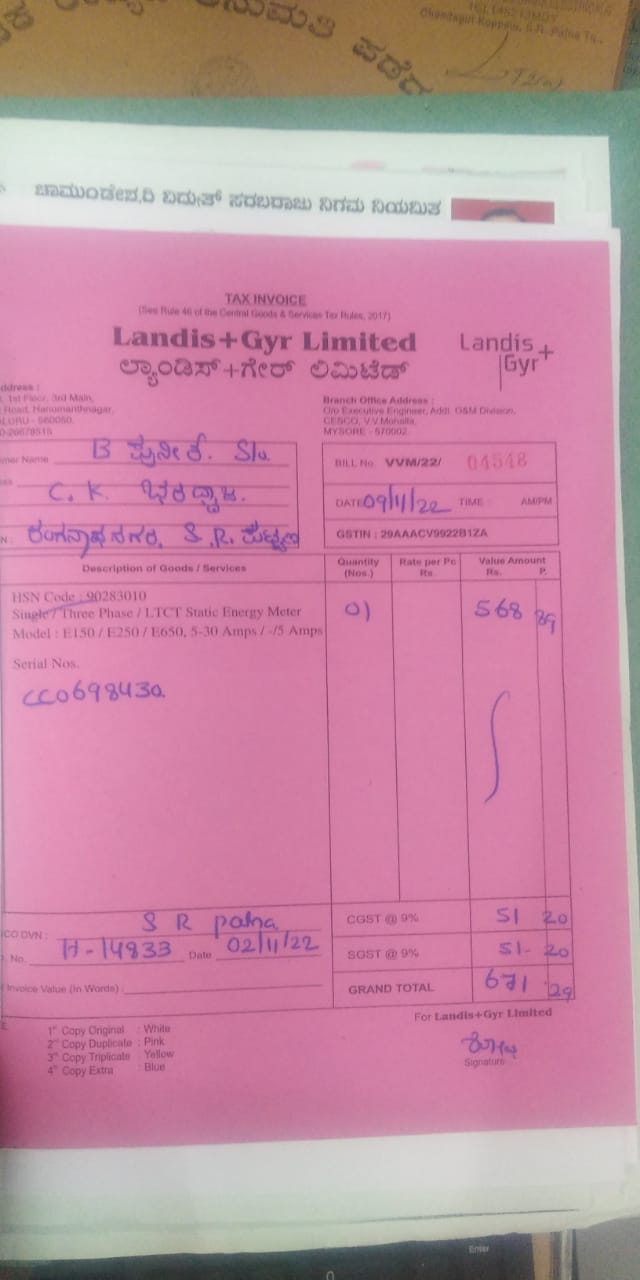 ಅನುಮತಿ ಪಡೆದ
Chandagal Koppalu, S.R. Patna Tq.,
ಚಾಮುಂಡೇಶ್ವರಿ ವಿದ್ಯುತ್ ಸರಬರಾಜು ನಿಗಮ ನಿಯಮಿತ
TAX INVOICE
(See Rule 46 of the Central Goods & Services Tax Rules, 2017)
Landis+Gyr Limited
Landis
Gyr+
ಲ್ಯಾಂಡಿಸ್+ಗೇರ್ ಲಿಮಿಟೆಡ್
ddress :
1st Floor, 3rd Main,
Road, Hanumanthnagar,
LURU - 560050.
Branch Office Address :
C/o Executive Engineer, Addl. O&M Division,
CESCO, V.V.Mohalla,
MYSORE - 570002.
mer Name B ಪುನೀತ್. S/o
C. K. ಭರದ್ವಾಜ.
ರಂಗನಾಥನಗರ, S.R. ಪಟ್ಟಣ
BILL No. VVM/22/ 04548
DATE 09/11/22 TIME : AM/PM
GSTIN : 29AAACV9922B1ZA
Description of Goods / Services
Quantity (Nos.)
Rate per Pc Rs.
Value Amount Rs. P.
HSN Code : 90283010
Single / Three Phase / LTCT Static Energy Meter
Model : E150 / E250 / E650, 5-30 Amps / -/5 Amps
01
568 89
Serial Nos.
CC0698430
CO DVN : S R patna
No. H-14833 Date 02/11/22
Invoice Value (In Words) :
CGST @ 9% 51 20
SGST @ 9% 51- 20
GRAND TOTAL 671 29
1st Copy Original : White
2nd Copy Duplicate : Pink
3rd Copy Triplicate : Yellow
4th Copy Extra : Blue
For Landis+Gyr Limited
Signature
Enter